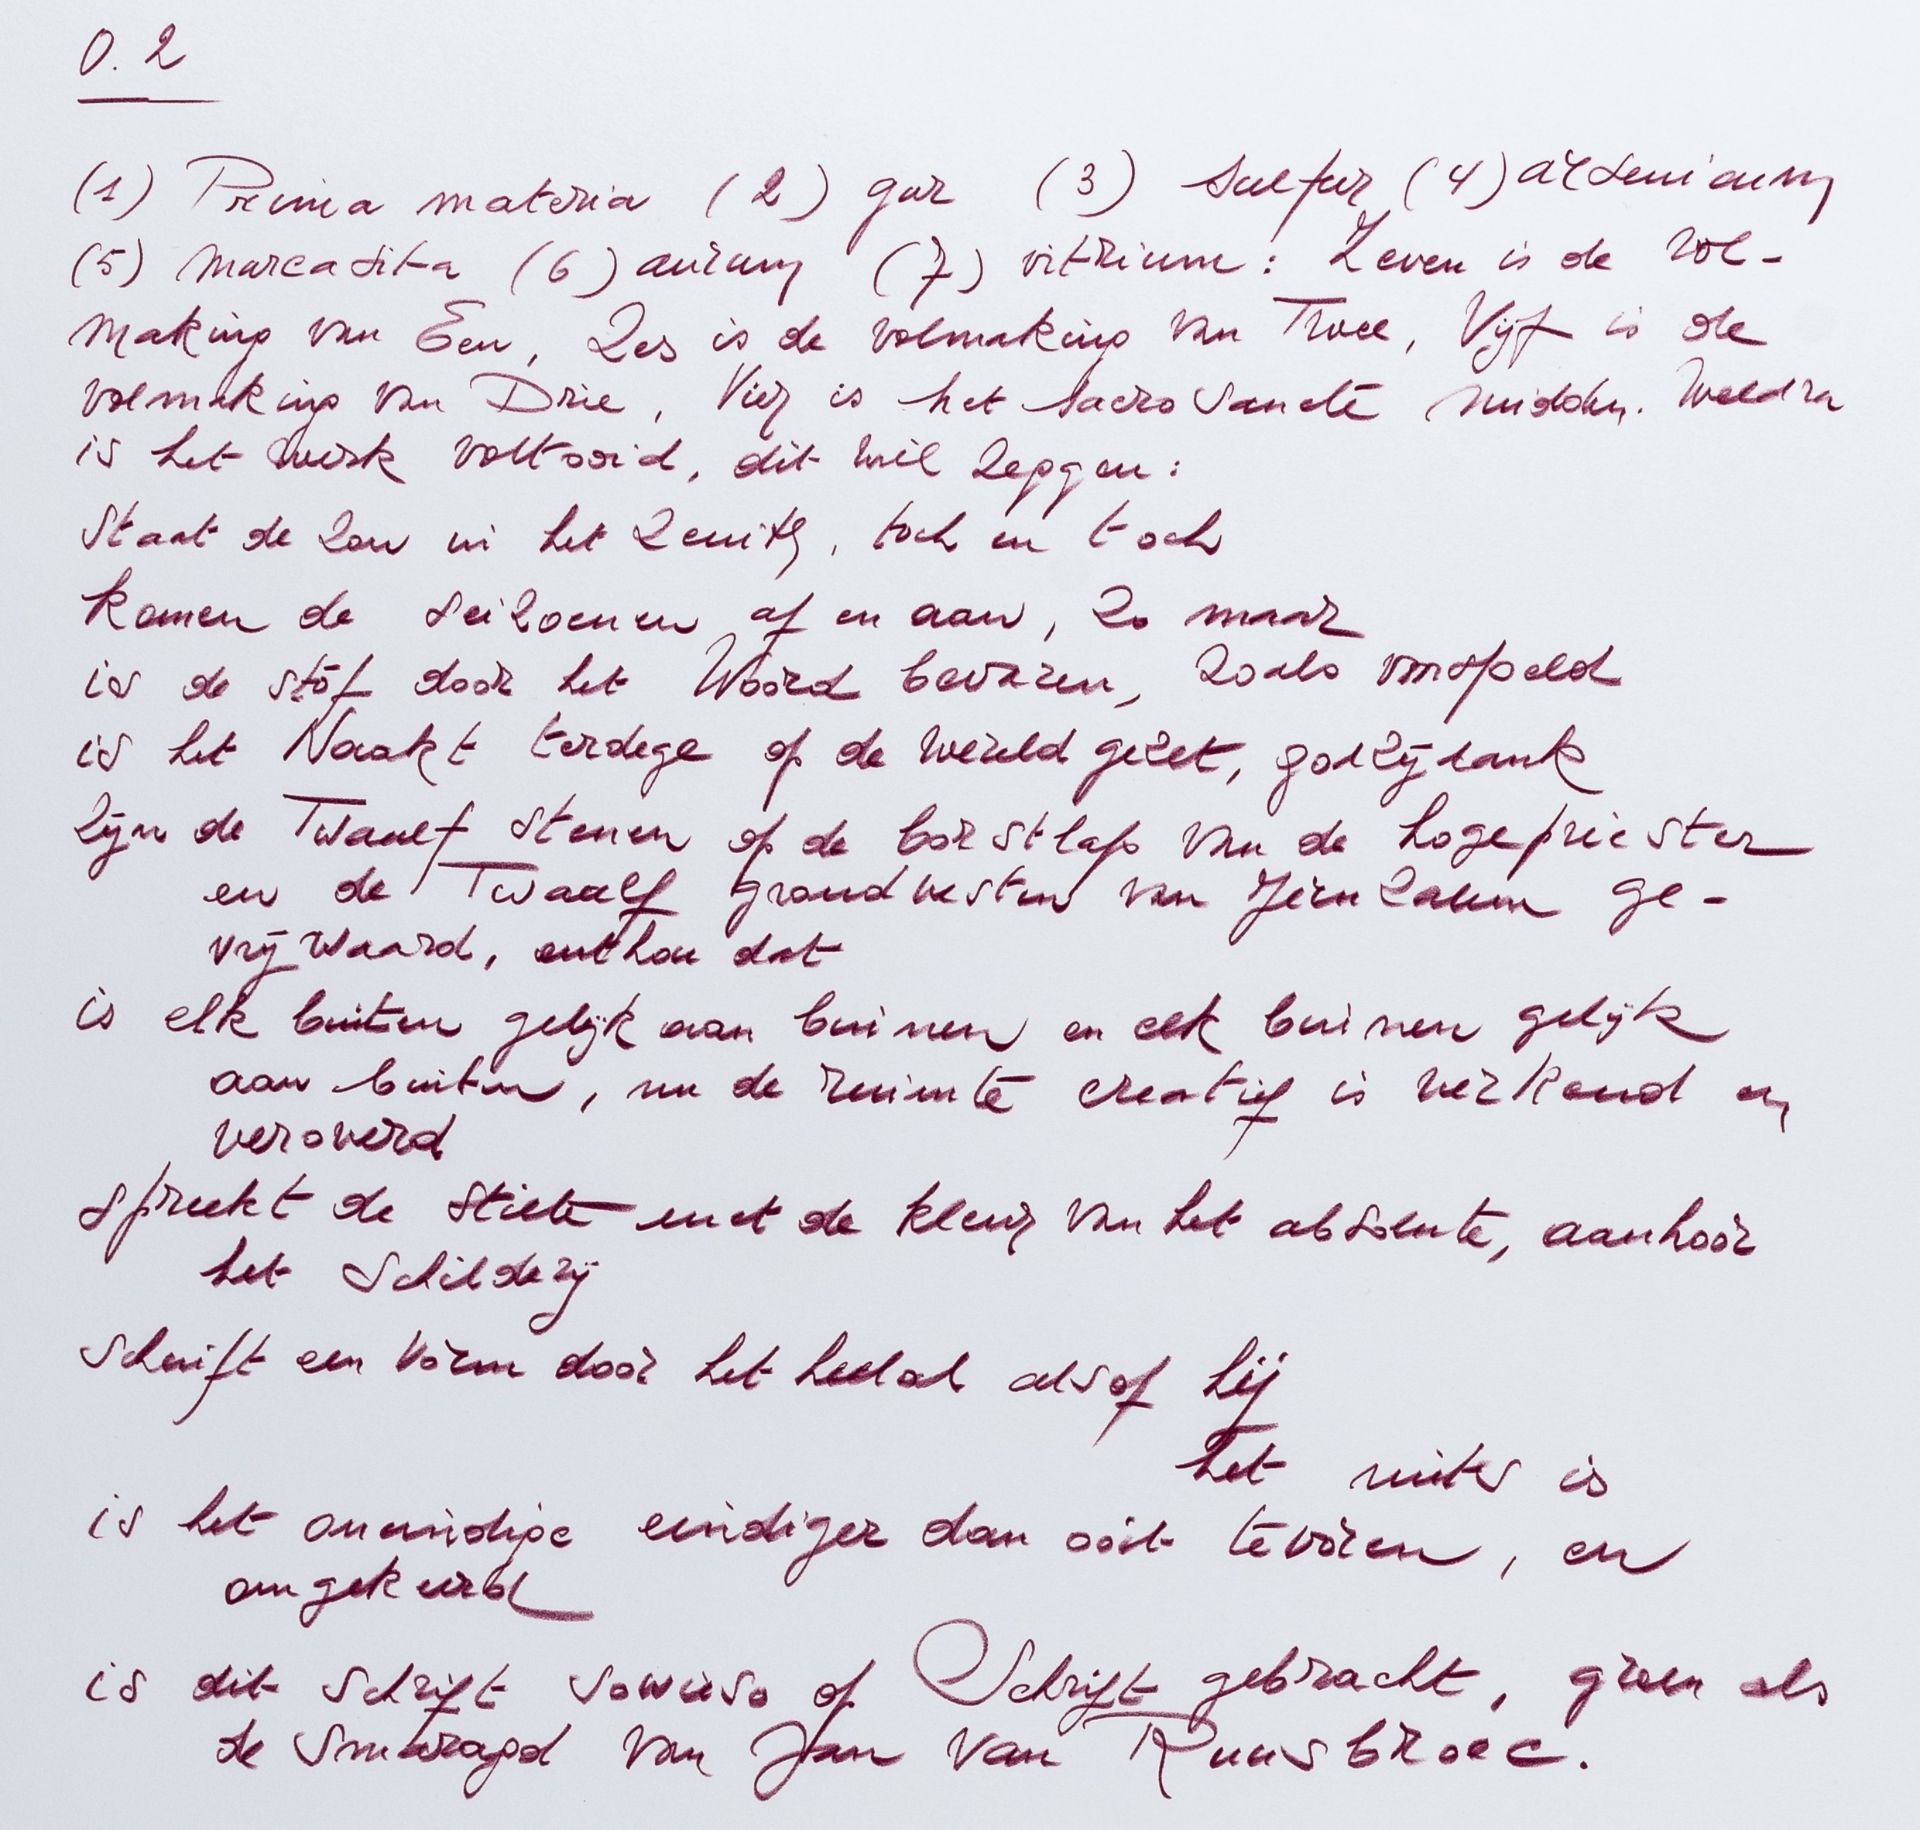 O. 2
(1) Prima materia (2) gur (3) sulfur (4) arsenicum
(5) marcasita (6) aurum (7) vitrium: Zeven is de vol-
making van Een, Zes is de volmaking van Twee, Vijf is de
volmaking van Drie, Vier is het sacrosancte midden. Weldra
is het werk voltooid, dit wil zeggen:
staat de zon in het zenith, toch en toch
komen de seizoenen af en aan, zo maar
is de stof door het Woord bevaren, zoals voorspeld
is het Naakt terdege op de wereld gezet, godzijdank
zijn de Twaalf stenen op de borstlap van de hogepriester
en de Twaalf grondvesten van Jeruzalem ge-
vrijwaard, onthou dat
is elk buiten gelijk aan binnen en elk binnen gelijk
aan buiten, nu de ruimte creatief is verkend en
veroverd
spreekt de stilte met de kleur van het absolute, aanhoor
het schilderij
schrijft een vorm door het heelal alsof hij
het niets is
is het oneindige eindiger dan ooit tevoren, en
omgekeerd
is dit schrift sowieso op Schrift gebracht, groen als
de smaragd van Jan van Ruusbroec.